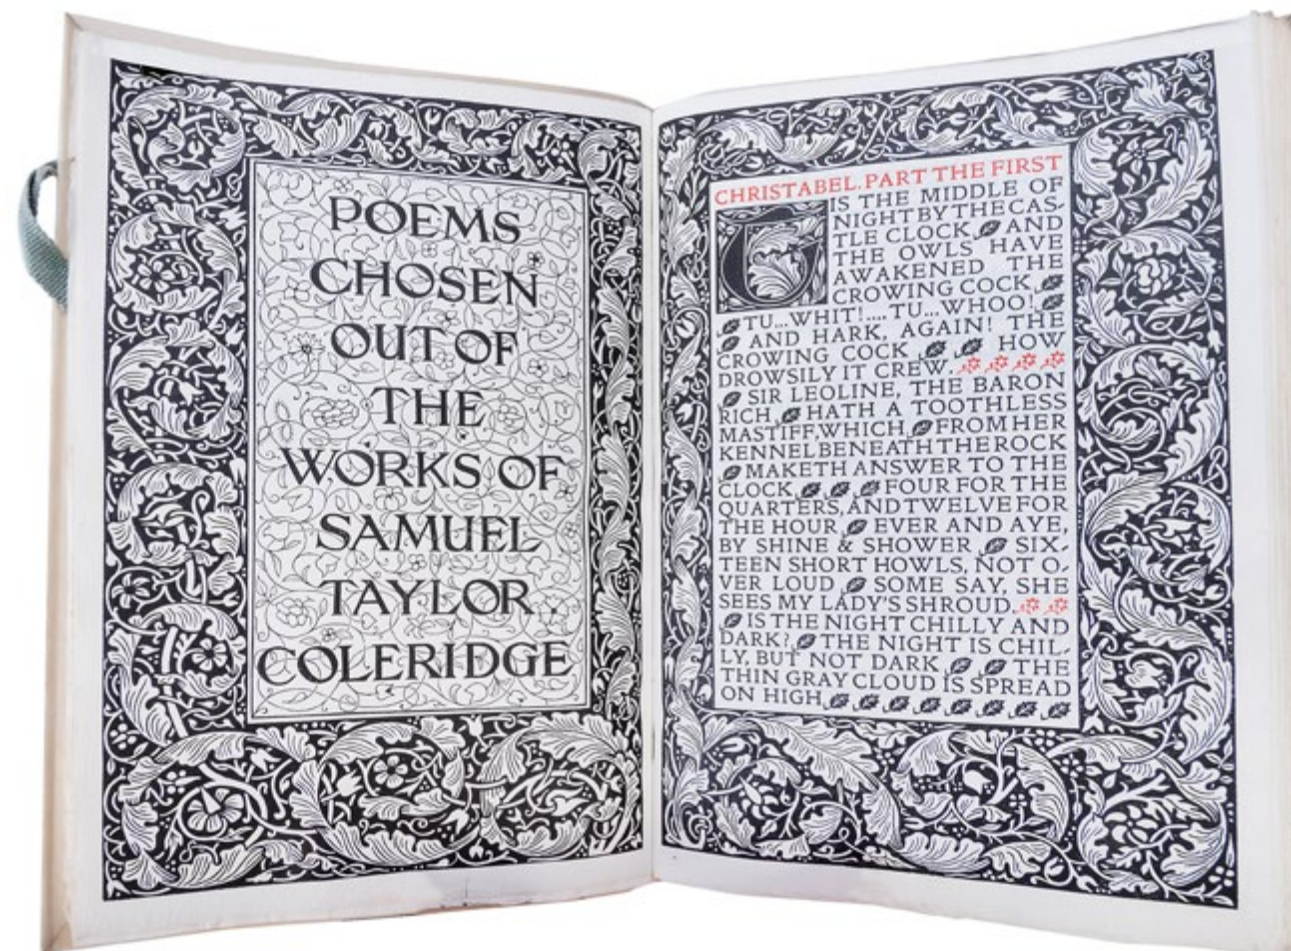 POEMS
CHOSEN
OUT OF
THE
WORKS OF
SAMUEL
TAYLOR
COLERIDGE
CHRISTABEL. PART THE FIRST
TIS THE MIDDLE OF
NIGHT BY THE CAS-
TLE CLOCK AND
THE OWLS HAVE
AWAKENED THE
CROWING COCK
TU...WHIT!.... TU...WHOO!
AND HARK, AGAIN! THE
CROWING COCK HOW
DROWSILY IT CREW.
SIR LEOLINE, THE BARON
RICH, HATH A TOOTHLESS
MASTIFF, WHICH FROM HER
KENNEL BENEATH THE ROCK
MAKETH ANSWER TO THE
CLOCK, FOUR FOR THE
QUARTERS, AND TWELVE FOR
THE HOUR EVER AND AYE,
BY SHINE & SHOWER SIX-
TEEN SHORT HOWLS, NOT O-
VER LOUD SOME SAY, SHE
SEES MY LADY'S SHROUD.
IS THE NIGHT CHILLY AND
DARK? THE NIGHT IS CHIL-
LY, BUT NOT DARK THE
THIN GRAY CLOUD IS SPREAD
ON HIGH